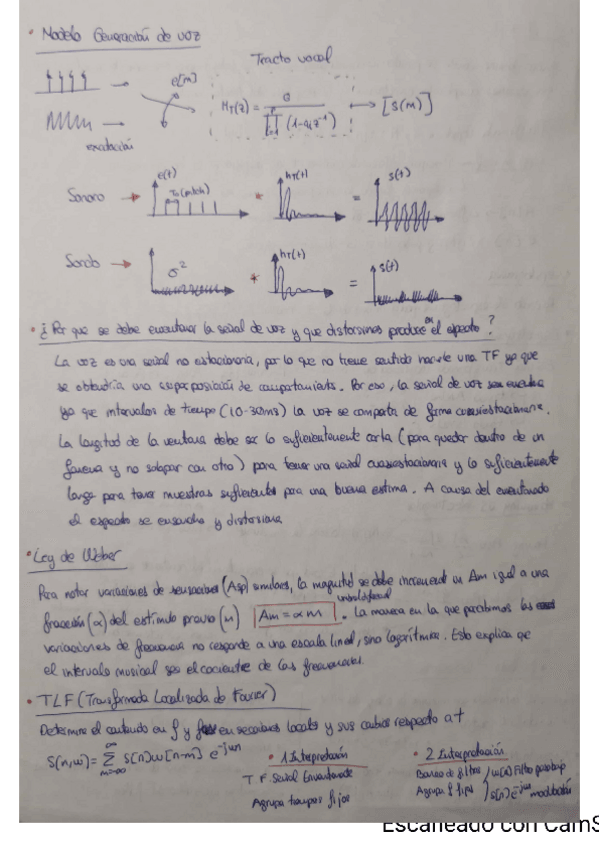 • Modelo Generación de voz
Tracto vocal
e[m]
H_T(z) = σ / ∏ (1-a z^-1) → [s(m)]
excitación
Sonoro → e(t) To(pitch) * h_T(t) = s(t)
Sordo → σ² * h_T(t) = s(t)
• ¿Por que se debe enventanar la señal de voz y que distorsiones produce en el espectro?
La voz es una señal no estacionaria, por lo que no tiene sentido hacerle una TF ya que
se obtendría una superposición de comportamientos. Por eso, la señal de voz se enventana
ya que intervalos de tiempo (10-30ms) la voz se comporta de forma cuasiestacionaria.
La longitud de la ventana debe ser lo suficientemente corta (para quedar dentro de un
fonema y no solapar con otro) para tener una señal cuasiestacionaria y lo suficientemente
larga para tener muestras suficientes para una buena estima. A causa del enventanado
el espectro se ensancha y distorsiona
• Ley de Weber
Para notar variaciones de sensaciones (Δp) similares, la magnitud se debe incrementar un Δm igual a una
fracción (α) del estímulo previo (m) Δm = α m umbral
• La manera en la que percibimos las
variaciones de frecuencia no responde a una escala lineal, sino logarítmica. Esto explica que
el intervalo musical sea el cociente de las frecuencias.
• TLF (Transformada Localizada de Fourier)
Determina el contenido en f y en secciones locales y sus cambios respecto a t
S(n,ω) = ∑ s(n) ω[n-m] e^-jωn
m=-∞ ∞
• 1 Interpretación
T.F. Señal Enventanada
Agrupa tiempos fijos
• 2 Interpretación
Banco de filtros / ω(n) Filtro paso bajo
Agrupa f fijas / s(n) e^-jωn modulación
Escaneado con CamS